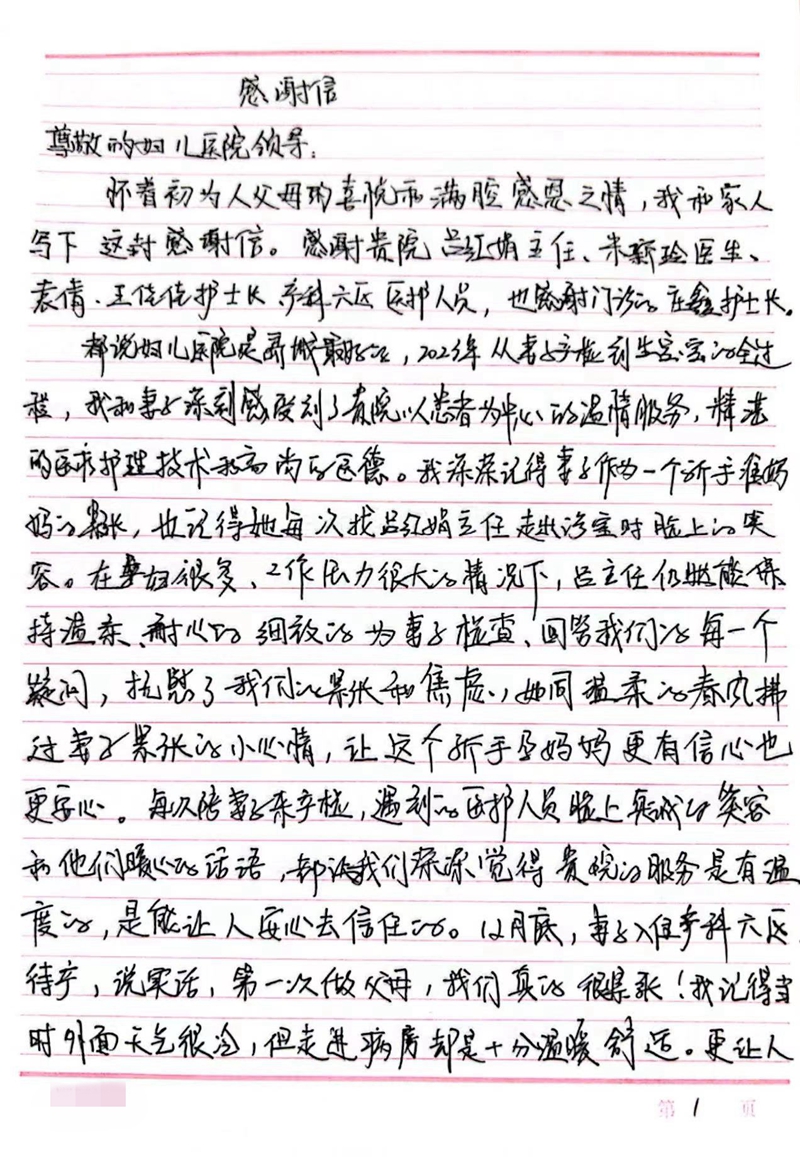 感谢信
尊敬的妇儿医院领导:
怀着初为人父母的喜悦和满腔感恩之情,我和家人
写下这封感谢信。感谢贵院吕红娟主任、朱新玲医生、
袁倩、王佳佳护士长产科六区医护人员,也感谢门诊的庄鑫护士长。
都说妇儿医院是聊城最好的,2023年从妻子产检到生宝宝的全过
程,我和妻子深刻感受到了贵院以患者为中心的温情服务,精湛
的医术护理技术和高尚的医德。我深深记得妻子作为一个新手准妈
妈的紧张,也记得她每次找吕红娟主任走出诊室时脸上的笑
容。在孕妇很多、工作压力很大的情况下,吕主任仍然能保
持温柔、耐心的细致的为妻子检查、回答我们的每一个
疑问,抚慰了我们的紧张和焦虑,她同温柔的春风拂
过妻子紧张的小心情,让这个新手孕妈妈更有信心也
更安心。每次陪妻子来产检,遇到的医护人员脸上真诚的笑容
和他们暖心的话语,都让我们深深觉得贵院的服务是有温
度的,是能让人安心去信任的。12月底,妻子入住产科六区
待产,说实话,第一次做父母,我们真的很紧张!我记得当
时外面天气很冷,但走进病房却是十分温暖舒适。更让人
第1页